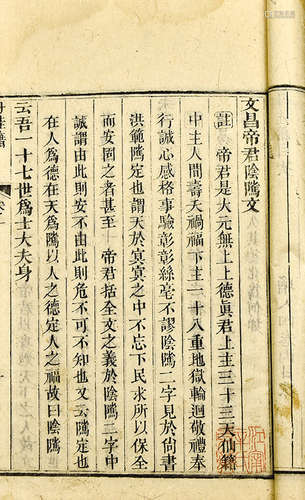 文昌帝君陰隲文
註 帝君是大元無上上德眞君上主三十三天仙籍
中主人間壽夭禍福下主一十八重地獄輪迴敬禮奉
行誠心感格事驗彰彰絲毫不謬陰隲二字見於尙書
洪範隲定也謂天於冥冥之中不忘下民求所以保全
而安固之者甚至 帝君括全文之義於陰隲二字中
誠謂由此則安不由此則危不可不知也又云隲定也
在人爲德在天爲隲以人之德定人之福故曰陰隲
云吾一十七世爲士大夫身
丹桂籍
卷一